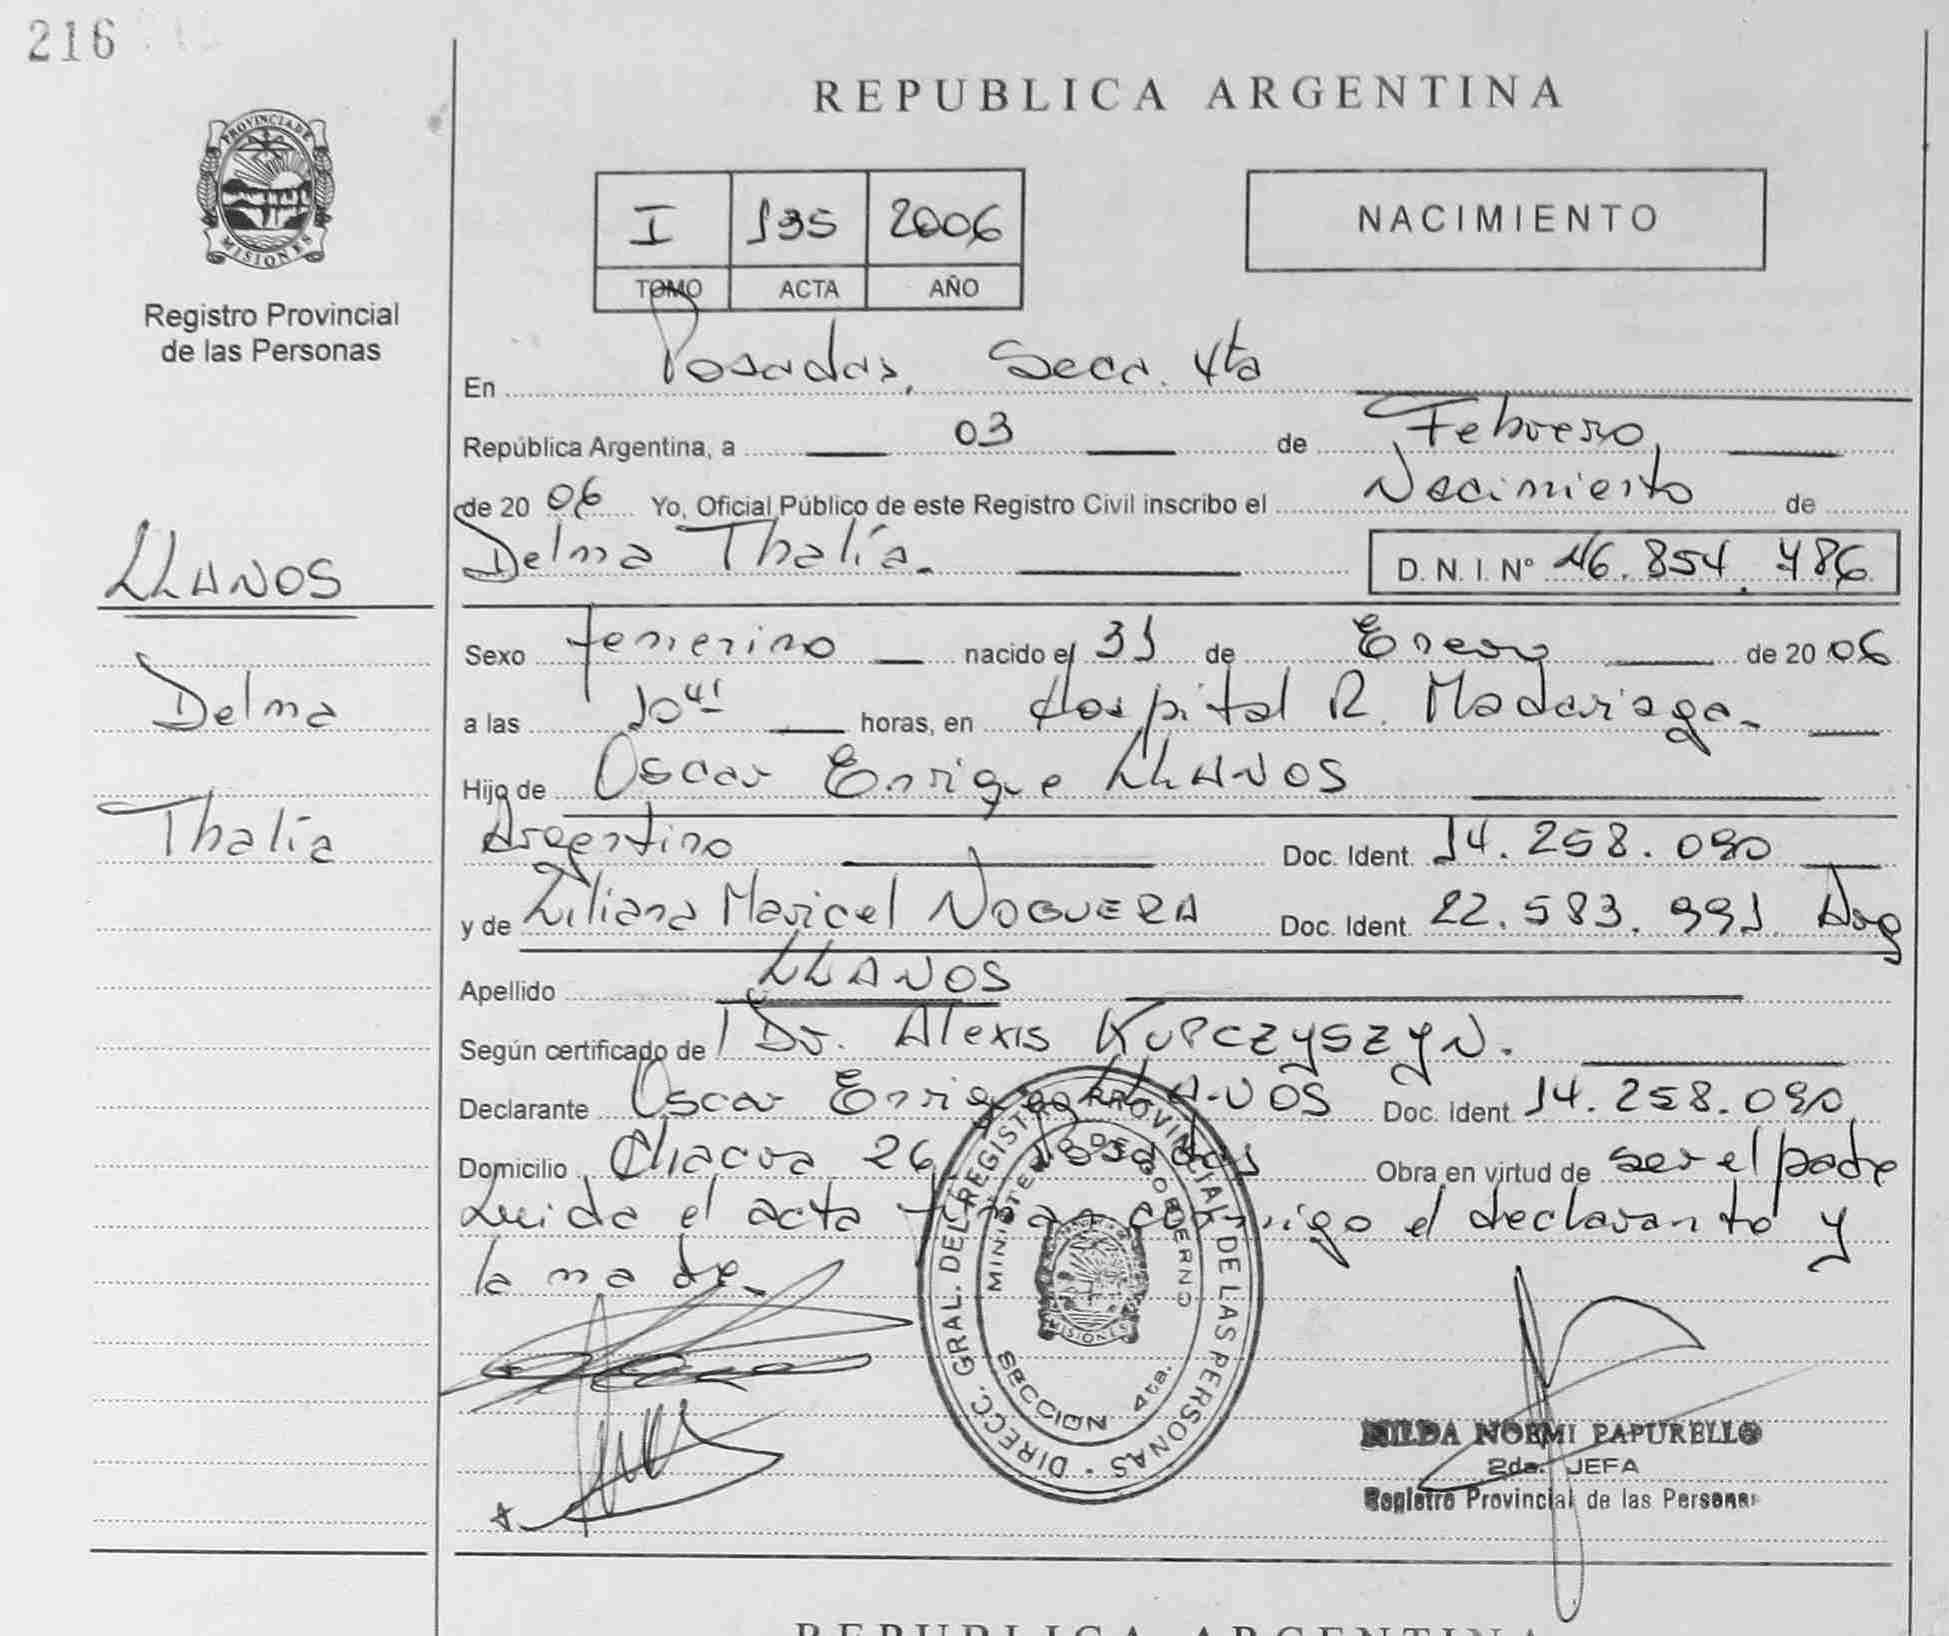 216
REPUBLICA ARGENTINA
PROVINCIA DE
MISIONES
Registro Provincial
de las Personas
I 135 2006
TOMO ACTA AÑO
NACIMIENTO
En Posadas, Secc. 4ta
República Argentina, a 03 de Febrero
de 20 06 Yo, Oficial Público de este Registro Civil inscribo el Nacimiento de
Delma Thalía. D. N. I. N° 46.854.786
LLANOS
Delma
Thalía
Sexo femenino nacido el 31 de Enero de 20 06
a las 10 41 horas, en Hospital R. Madariaga.
Hijo de Oscar Enrique LLANOS
Argentino Doc. Ident. 14.258.090
y de Liliana Maricel NOGUERA Doc. Ident. 22.583.991 Arg
Apellido LLANOS
Según certificado de Dr. Alexis KUPCZYSZYN.
Declarante Oscar Enrique LLANOS Doc. Ident. 14.258.090
Domicilio Chacra 26 Posadas Obra en virtud de ser el padre
Leida el acta firman conmigo el declarante y
la madre.
DIRECC. GRAL. DEL REGISTRO PROVINCIAL DE LAS PERSONAS
MINISTERIO DE GOBIERNO
MISIONES
SECCION 4ta.
NOEMI PAPURELLO
2da. JEFA
Registro Provincial de las Personas
REPUBLICA ARGENTINA